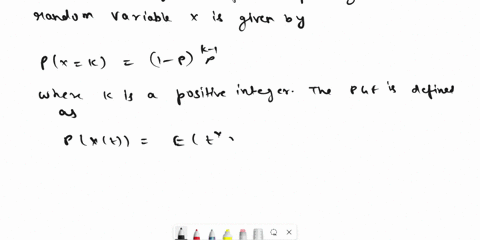 random variable x is given by
P(x = k) = (1-p)^{k-1} p
where k is a positive integer. The PGF is defined
as
P(x(t)) = E(t^x